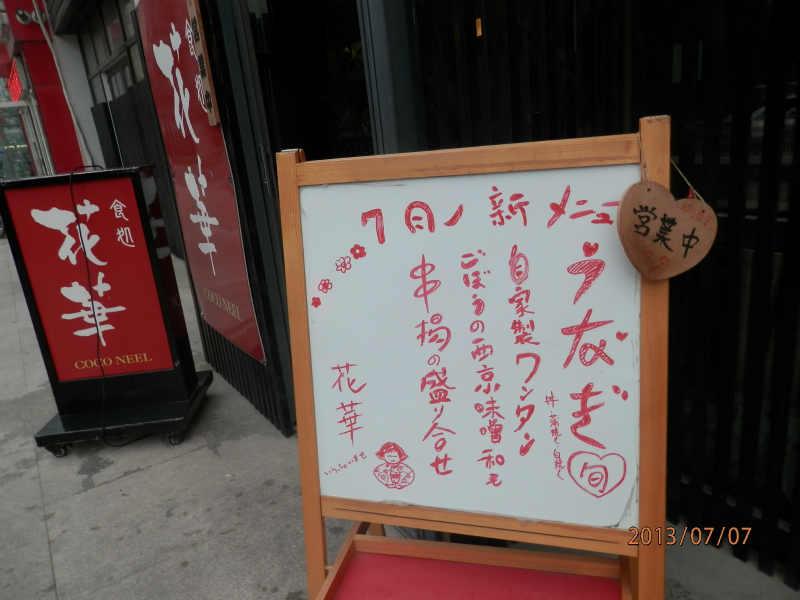 食処
花華
COCO NEEL
食処
花華
COCO NEEL
7月ノ新メニュー
うなぎ
旬
自家製ワンタン
ごぼうの西京味噌和え
串揚の盛り合せ
花華
いらっしゃいませ
営業中
2013/07/07